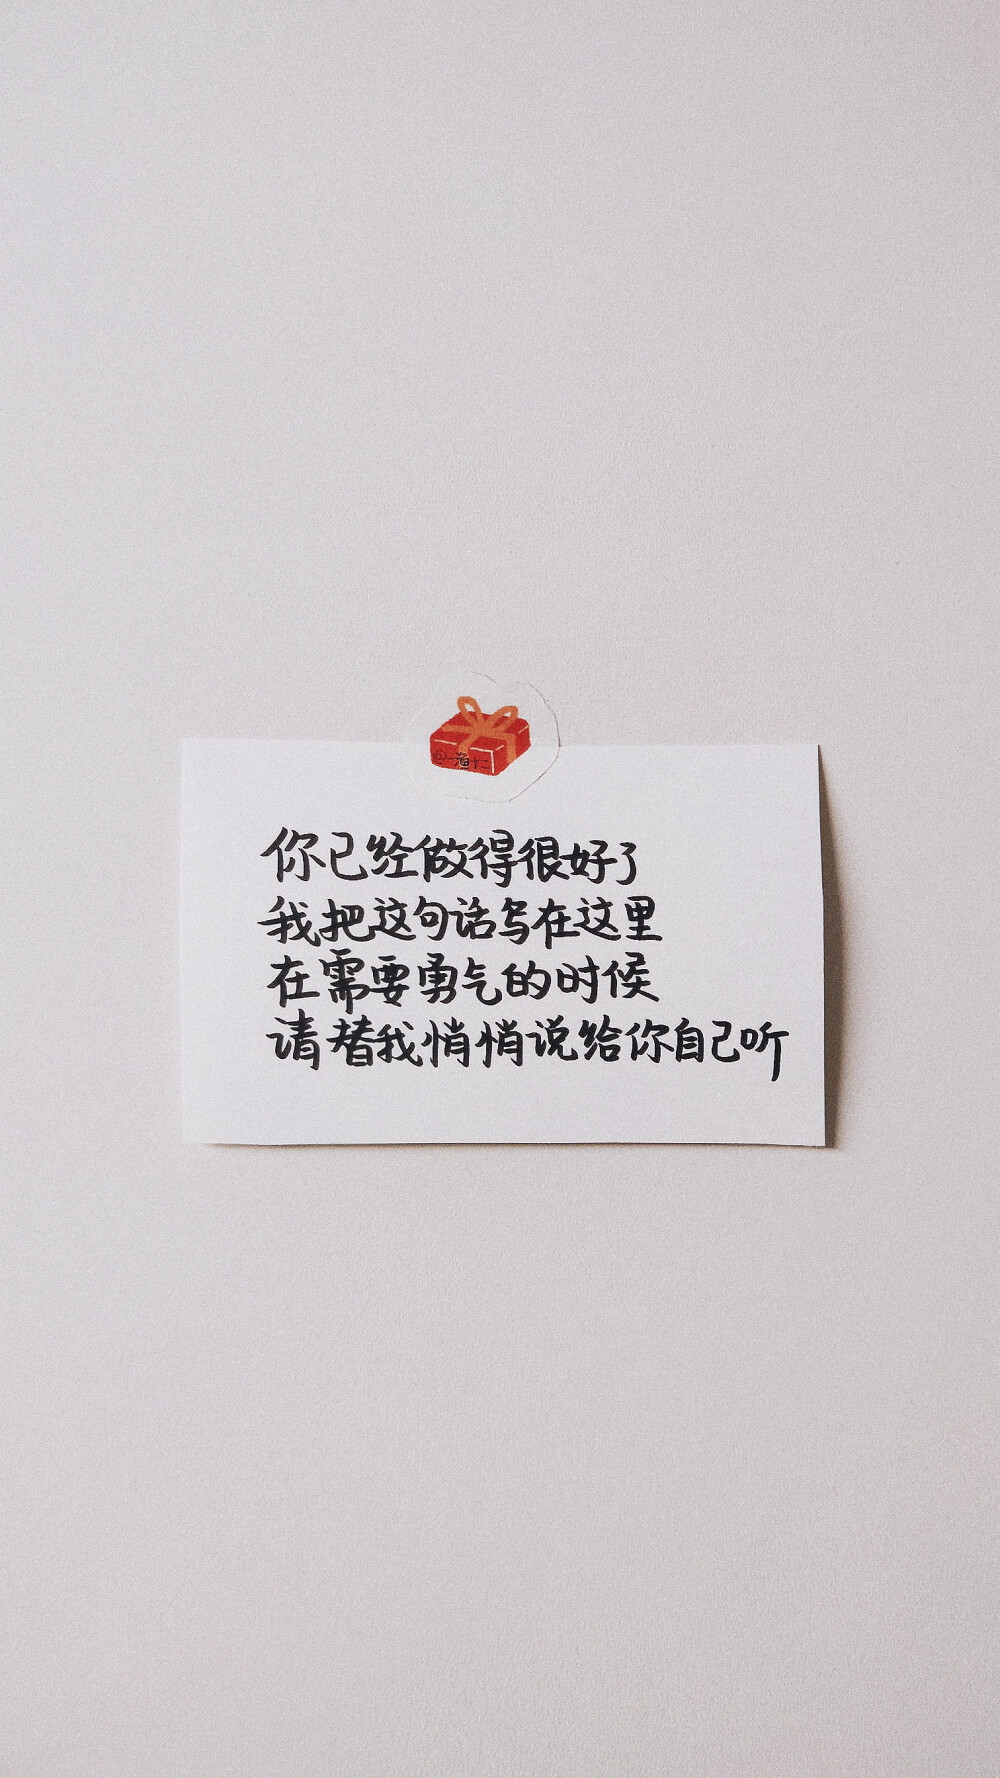 @一渔十二
你已经做得很好了
我把这句话写在这里
在需要勇气的时候
请替我悄悄说给你自己听